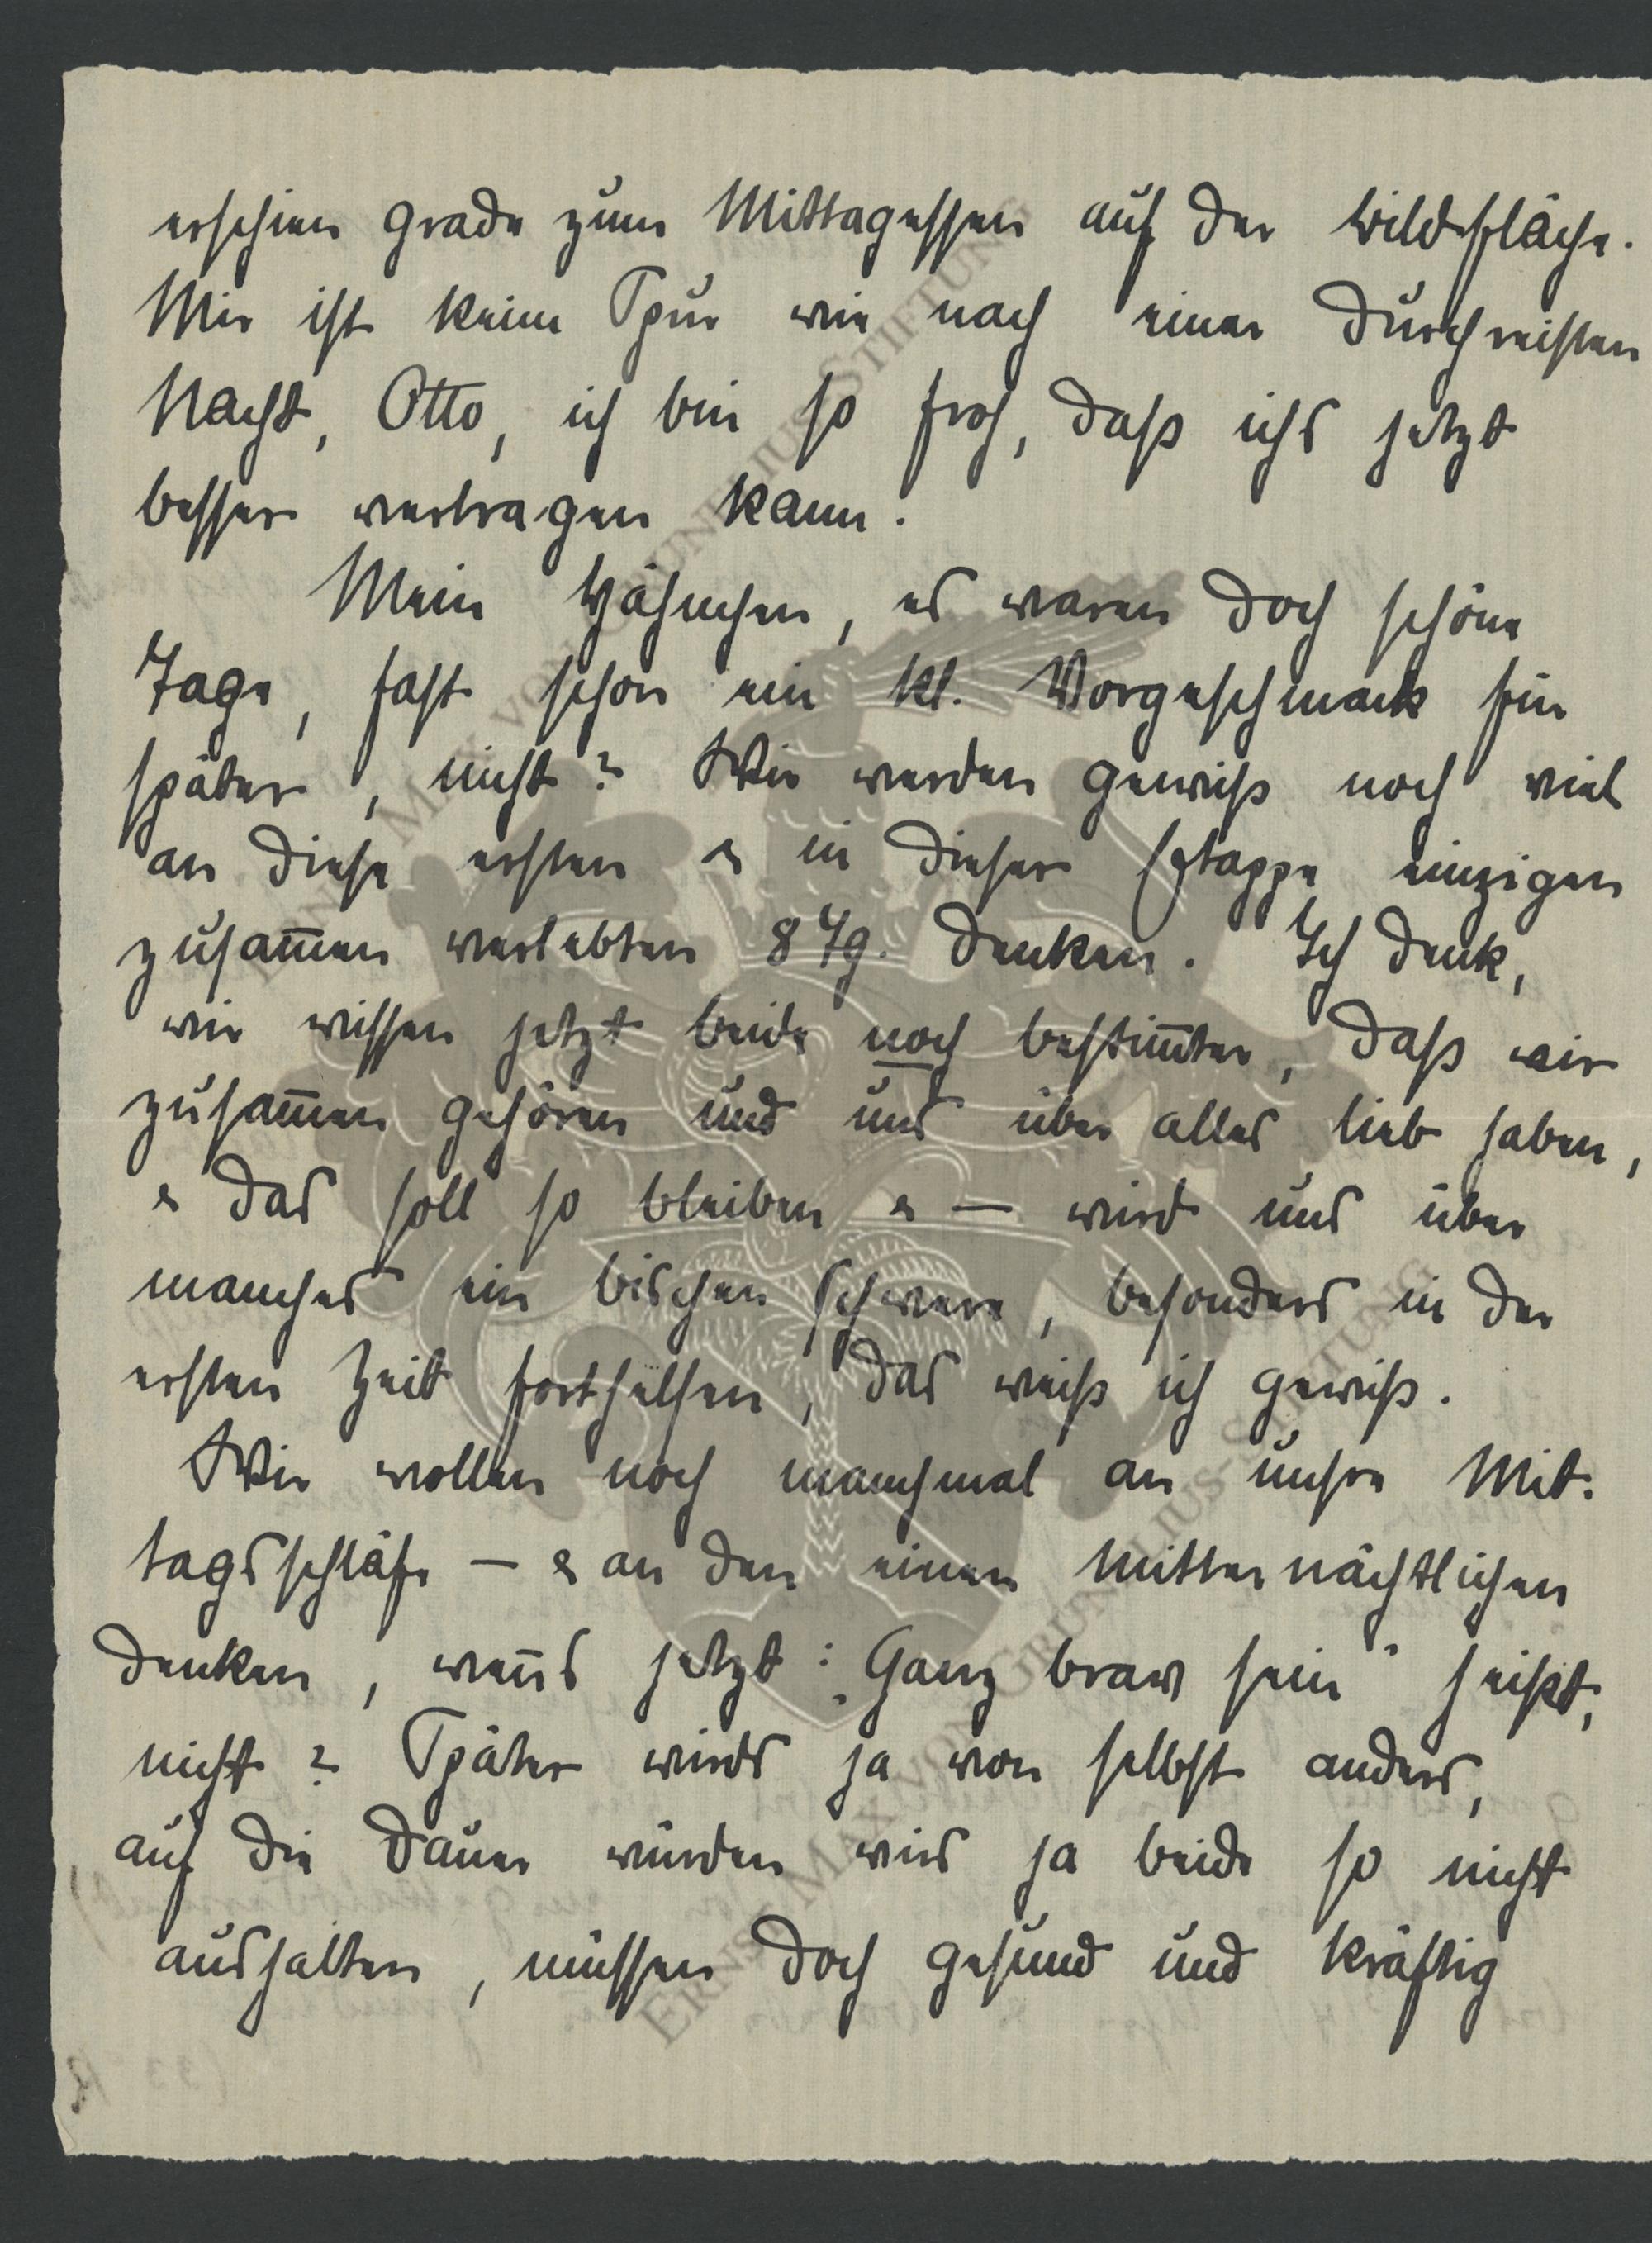 erschien grade zum Mittagessen auf der Bildfläche.
Mir ist keine Spur wie nach einer durchreisten
Nacht, Otto, ich bin so froh, daß ichs jetzt
besser vertragen kann.
Mein Hähnchen, es waren doch schöne
Tage, fast schon ein kl. Vorgeschmack für
später, nicht? Wir werden gewiß noch viel
an diese ersten & in dieser Etappe einzigen
zusam̅en verlebten 8 Tg. denken. Ich denk,
wir wissen jetzt beide noch bestim̅ter, daß wir
zusam̅en gehören und uns über alles lieb haben,
& das soll so bleiben & — wird uns über
manches ein bischen schwere, besonders in der
ersten Zeit forthelfen, das weiß ich gewiß.
Wir wollen noch manchmal an unsre Mit-
tagsschläfe — & an den einen mitternächtlichen
denken, wen̅s jetzt: „Ganz brav sein" heißt,
nicht? Später wirds ja von selbst anders,
auf die Dauer würden wirs ja beide so nicht
aushalten, müssen doch gesund und kräftig
ERNST MAX VON GRUNELIUS-STIFTUNG
ERNST MAX VON GRUNELIUS-STIFTUNG